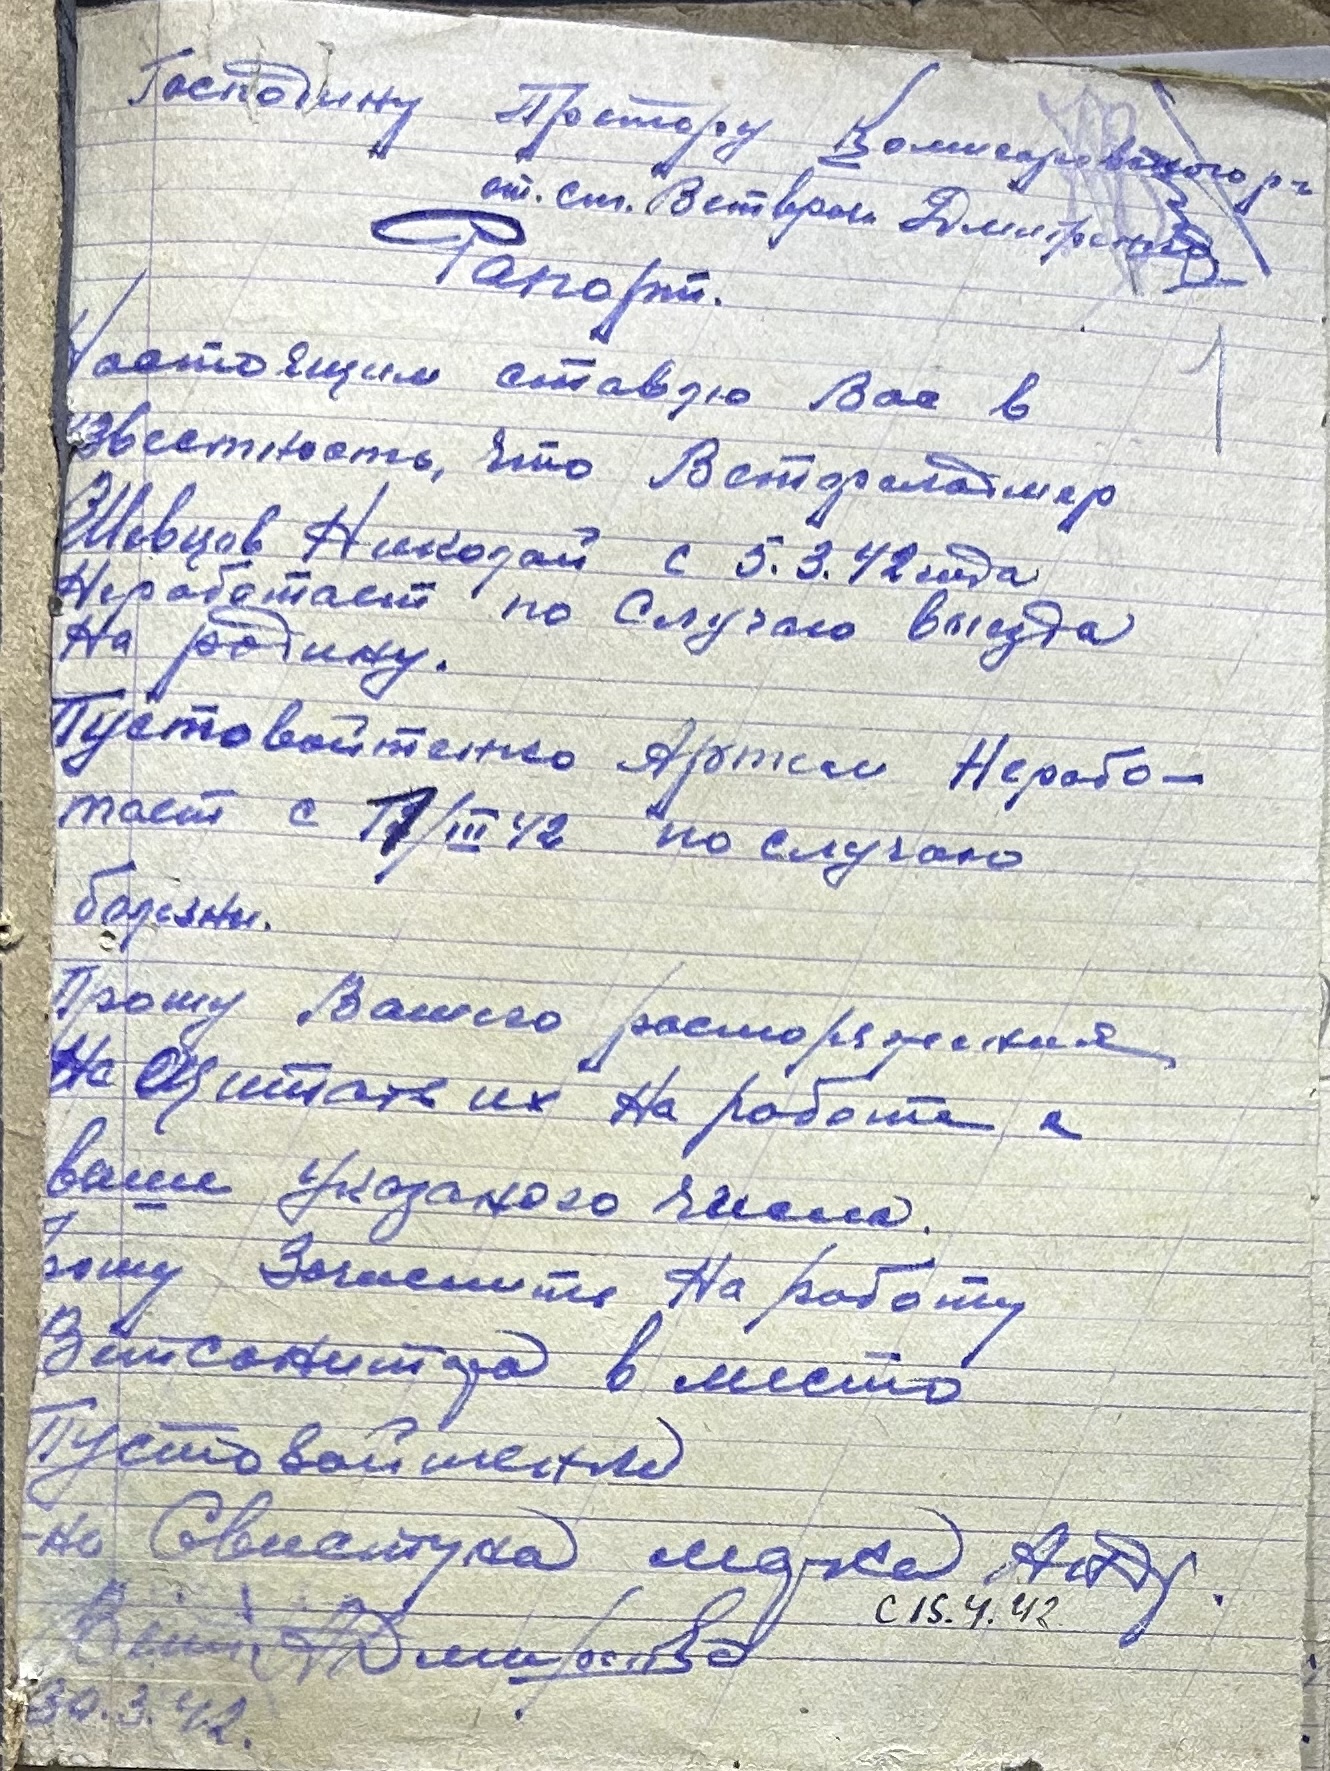 Господину Претору Комисаровского р-н
от. ст. Ветврача Дмитренко
Рапорт.
Настоящим ставлю Вас в
известность, что Ветфельдшер
Шевцов Николай с 5.3.42 года
Неработает по Случаю выезда
На родину.
Пустовойтенко Артем Нерабо-
тает с 17/III 42 по случаю
болезни.
Прошу Вашего распоряжения
Не Щитать их На работе с
выше указаного числа.
Прошу Зачислить На работу
Ветсанитара в место
Пустовойтенка
на Свистуна Анд.
с 15.4.42
Ветв. Дмитренко
30.3.42.